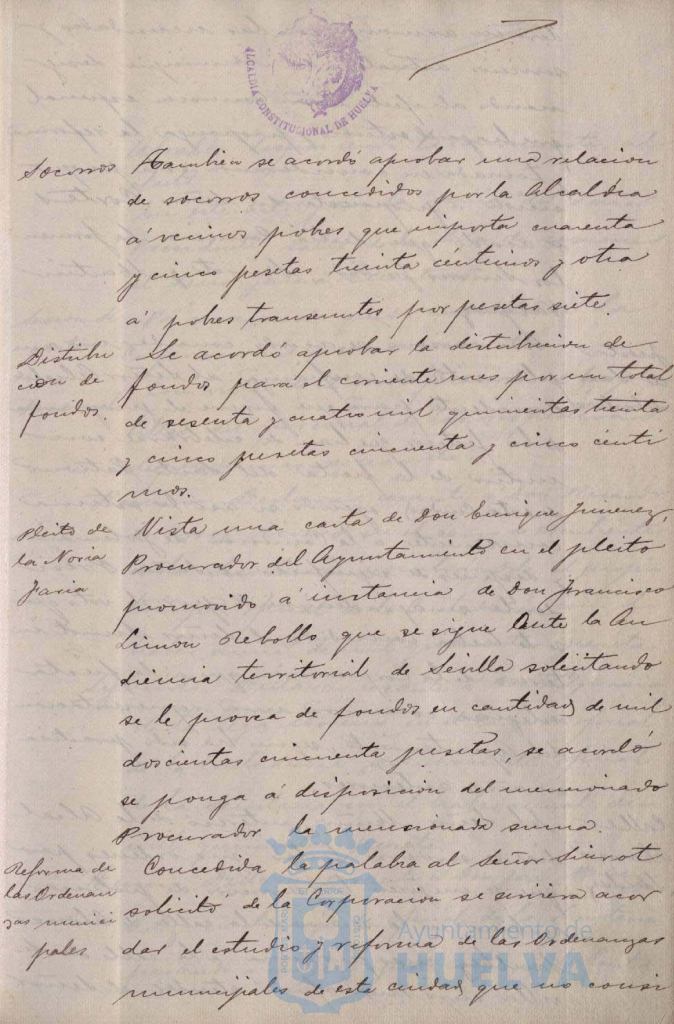 ALCALDIA CONSTITUCIONAL DE HUELVA
Socorros
Tambien se acordó aprobar una relacion
de socorros concedidos por la Alcaldia
á vecinos pobres que importa cuarenta
y cinco pesetas treinta céntimos y otra
á pobres transeuntes por pesetas siete.
Distribu
cion de
fondos.
Se acordó aprobar la distribucion de
fondos para el corriente mes por un total
de sesenta y cuatro mil quinientas treinta
y cinco pesetas cincuenta y cinco centi
mos.
Pleito de
la Noria
Faria
Vista una carta de Don Enrique Jimenez,
Procurador del Ayuntamiento en el pleito
promovido á instancia de Don Francisco
Limon Rebollo que se sigue ante la Au
diencia territorial de Sevilla solicitando
se le provea de fondos en cantidad de mil
doscientas cincuenta pesetas, se acordó
se ponga á disposicion del mencionado
Procurador la mencionada suma.
Reforma de
las Ordenan
zas munici
pales
Concedida la palabra al Señor Siurot
solicitó de la Corporacion se sirviera acor
dar el estudio y reforma de las Ordenanzas
municipales de esta ciudad que no consi
Ayuntamiento de
HUELVA